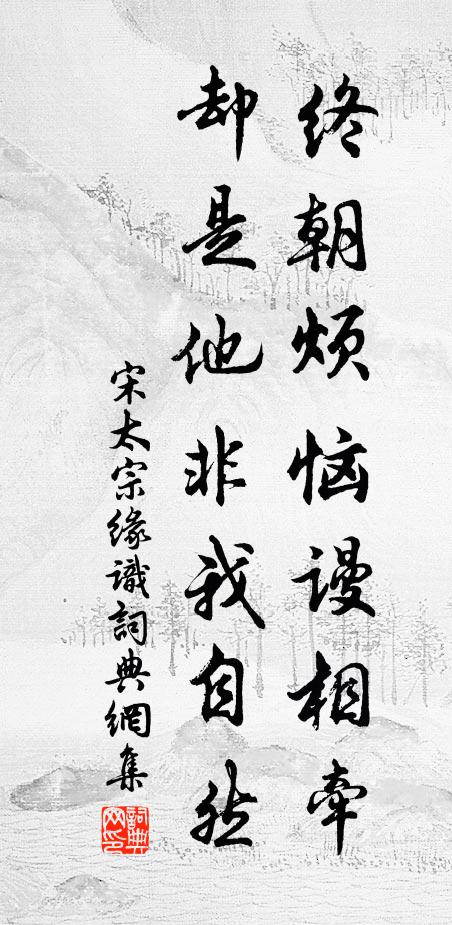 终朝烦恼谩相牵
却是他非我自然
宋太宗缘識詞典網集
詞典网印